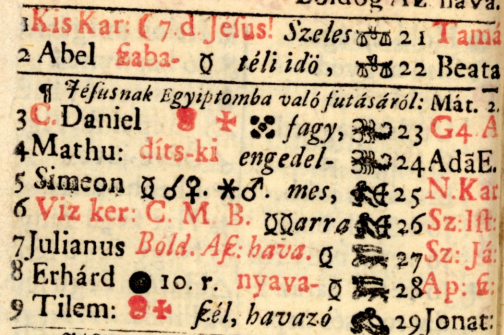 Bóldog Aſz. hava.
1 Kis Kar: ☾ 7. d. Jeſus! Szeles ♎ 21 Tamá
2 Abel ſzaba- ☿ téli idö, ♎ 22 Beata
¶ Jéſusnak Egyiptomba való futásáról: Mát. 2.
3 C. Daniel fagy, ♏ 23 G 4. A
4 Mathu: díts-ki engedel- ♏ 24 AdāE.
5 Simeon ☿ ☌ ♀. ⚹ ♂. mes, ♐ 25 N. Kar
6 Viz ker: C. M. B. ☿☿ arra ♐ 26 Sz: Iſt:
7 Julianus Bóld. Aſz: hava. ☿ ♑ 27 Sz: Já:
8 Erhárd ● 10. r. nyava- ☿ ♑ 28 Ap: ſz:
9 Tilem: ſzél, havazó 29 Jonat: